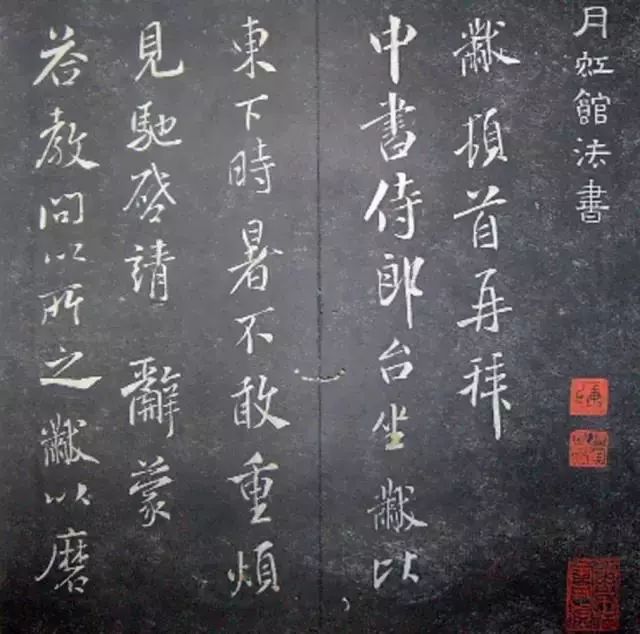 月虹館法書
黻頓首再拜
中書侍郎台坐黻比
東下時暑不敢重煩
見馳啓請 辭蒙
荅教問以所之黻以磨